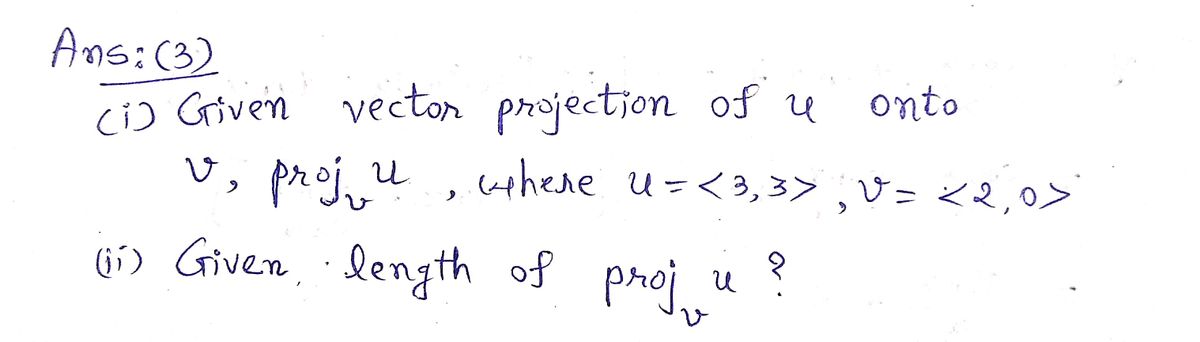 Ans:(3)
(i) Given vector projection of u onto
v, proj_v u , where u = <3,3> , v = <2,0>
(ii) Given, length of proj_v u ?